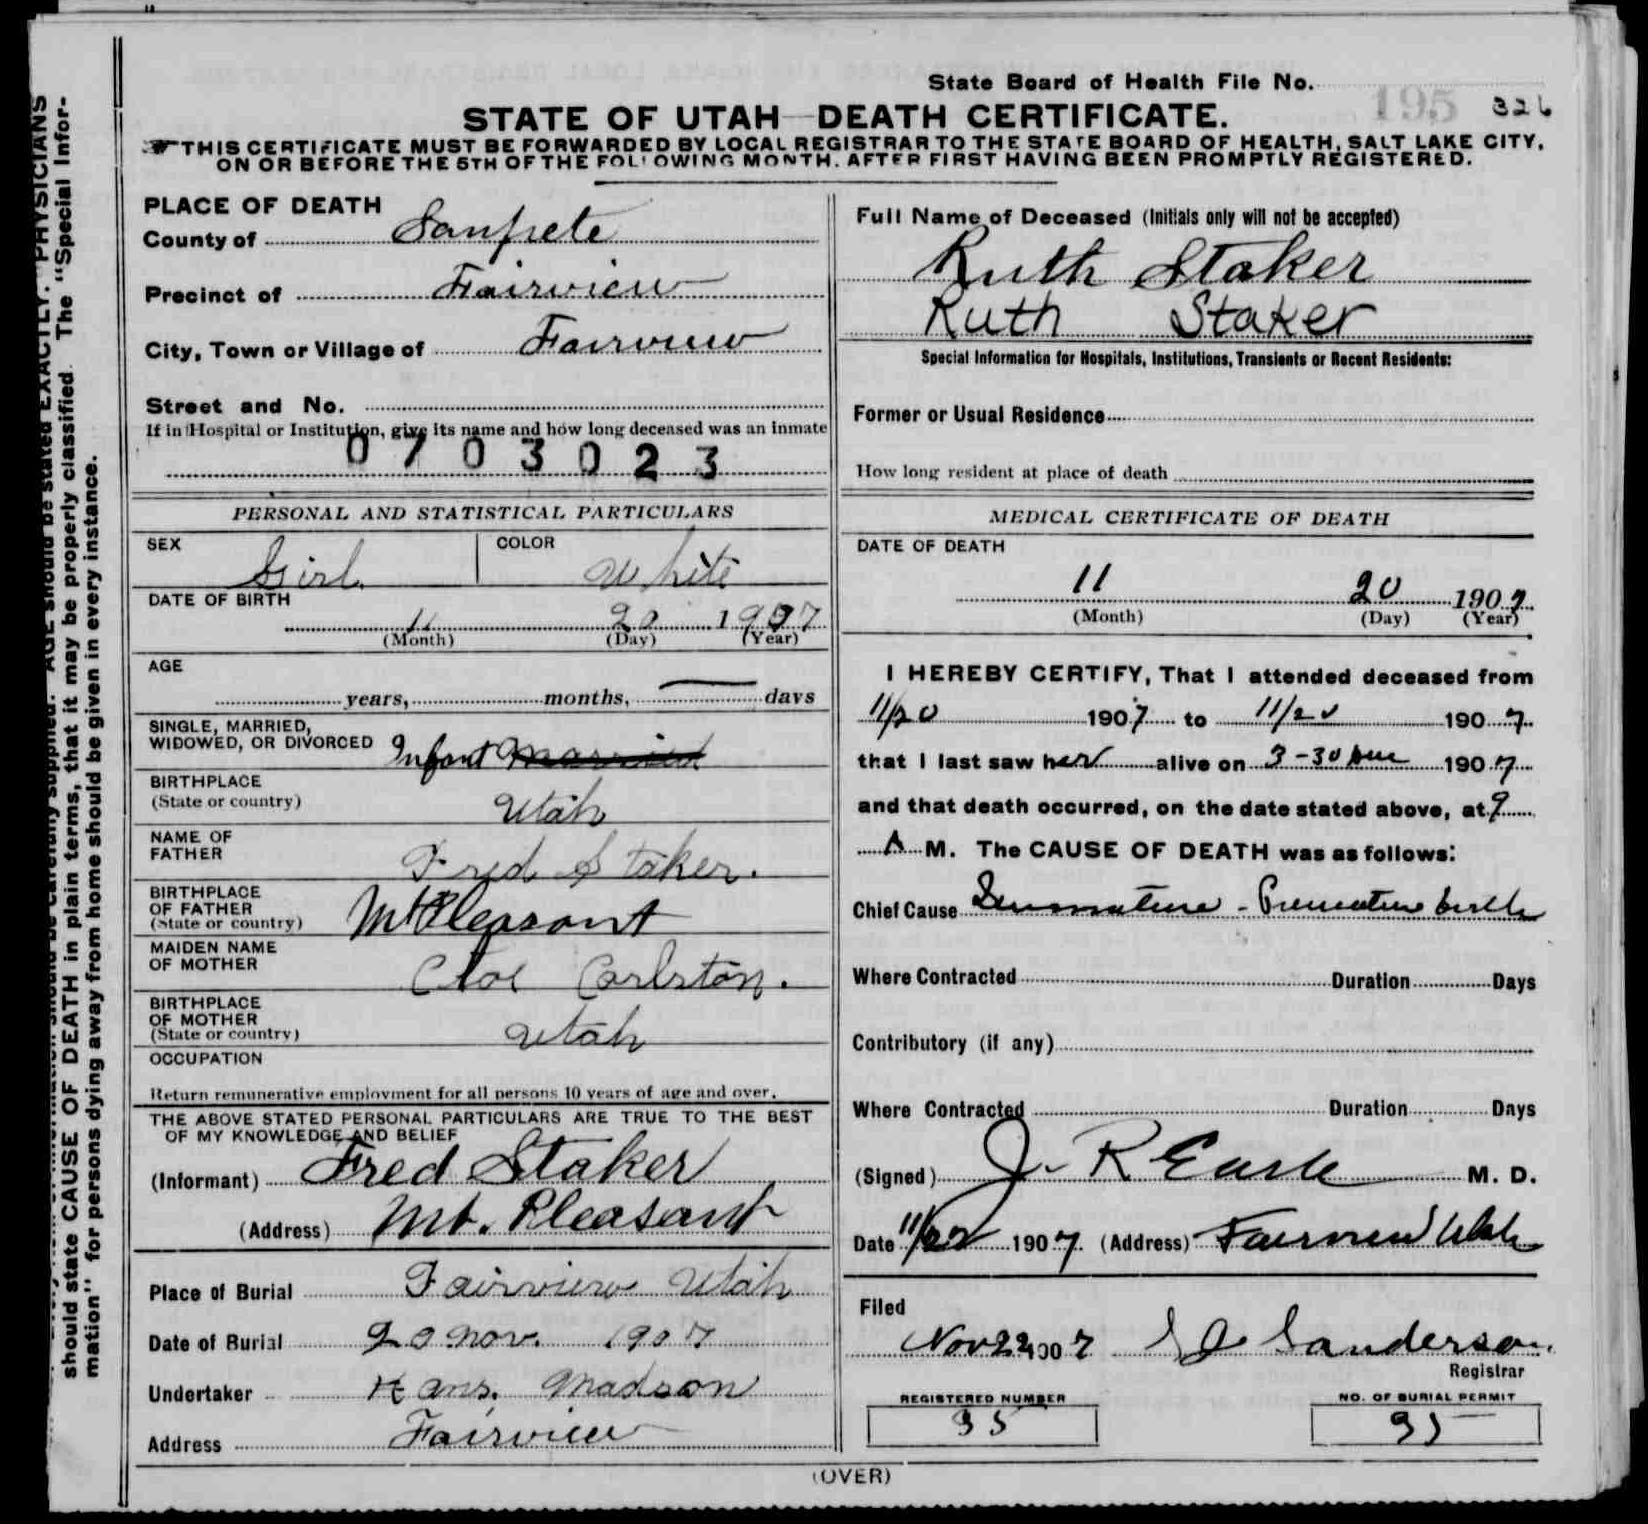 State Board of Health File No. 195 326
STATE OF UTAH DEATH CERTIFICATE.
THIS CERTIFICATE MUST BE FORWARDED BY LOCAL REGISTRAR TO THE STATE BOARD OF HEALTH, SALT LAKE CITY,
ON OR BEFORE THE 5TH OF THE FOLLOWING MONTH, AFTER FIRST HAVING BEEN PROMPTLY REGISTERED.
PLACE OF DEATH
County of Sanpete
Precinct of Fairview
City, Town or Village of Fairview
Street and No.
If in Hospital or Institution, give its name and how long deceased was an inmate
0703023
PERSONAL AND STATISTICAL PARTICULARS
SEX Girl. COLOR White
DATE OF BIRTH
11 20 1907
(Month) (Day) (Year)
AGE
years, months, — days
SINGLE, MARRIED,
WIDOWED, OR DIVORCED Infant married
BIRTHPLACE
(State or country) Utah
NAME OF
FATHER Fred Staker.
BIRTHPLACE
OF FATHER
(State or country) Mt Pleasant
MAIDEN NAME
OF MOTHER Cloe Carlston.
BIRTHPLACE
OF MOTHER
(State or country) Utah
OCCUPATION
Return remunerative employment for all persons 10 years of age and over.
THE ABOVE STATED PERSONAL PARTICULARS ARE TRUE TO THE BEST
OF MY KNOWLEDGE AND BELIEF
(Informant) Fred Staker
(Address) Mt. Pleasant
Place of Burial Fairview Utah
Date of Burial 20 Nov. 1907
Undertaker Hans. Madson
Address Fairview
Full Name of Deceased (Initials only will not be accepted)
Ruth Staker
Ruth Staker
Special Information for Hospitals, Institutions, Transients or Recent Residents:
Former or Usual Residence
How long resident at place of death
MEDICAL CERTIFICATE OF DEATH
DATE OF DEATH
11 20 1907
(Month) (Day) (Year)
I HEREBY CERTIFY, That I attended deceased from
11/20 1907 to 11/20 1907
that I last saw her alive on 3-30 1907
and that death occurred, on the date stated above, at 9
A M. The CAUSE OF DEATH was as follows:
Chief Cause - Premature birth
Where Contracted Duration Days
Contributory (if any)
Where Contracted Duration Days
(Signed) J. R Earle M. D.
Date 11/22 1907. (Address) Fairview Utah
Filed
Nov 22 1907 Sanderson.
Registrar
REGISTERED NUMBER
35
NO. OF BURIAL PERMIT
35
(OVER)
should state CAUSE OF DEATH in plain terms, that it may be properly classified. The "Special Infor-
mation" for persons dying away from home should be given in every instance.